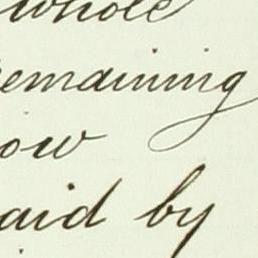 whole
remaining
ow
aid by